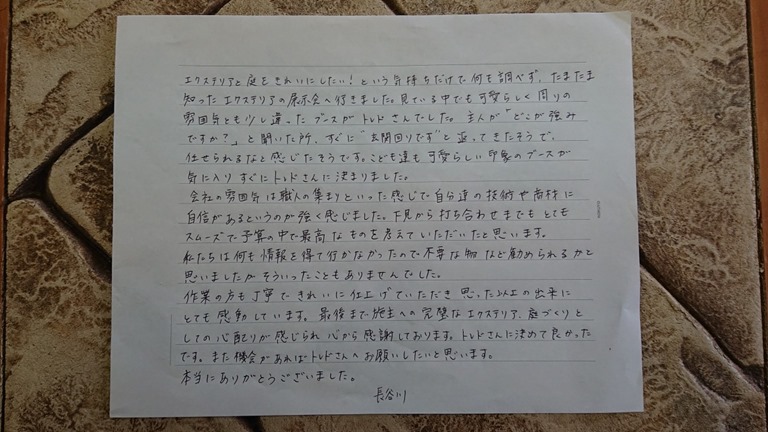 エクステリアと庭をきれいにしたい！という気持ちだけで何も調べず、たまたま
知ったエクステリアの展示会へ行きました。見ている中でも可愛らしく周りの
雰囲気とも少し違ったブースがトレドさんでした。主人が"どこが強み
ですか？」と聞いた所、すぐに"玄関回りです"と返ってきたそうで、
任せられるなと感じたそうです。こども達も可愛らしい印象のブースが
気に入りすぐにトレドさんに決まりました。
会社の雰囲気は職人の集まりといった感じで自分達の技術や商材に
自信があるというのが強く感じました。下見から打ち合わせまでもとても
スムーズで予算の中で最高なものを考えていただいたと思います。
私たちは何も情報を得て行かなかったので不要な物など勧められるかと
思いましたがそういったこともありませんでした。
作業の方も丁寧できれいに仕上げていただき思った以上の出来に
とても感動しています。最後まで施主への完璧なエクステリア、庭づくりと
しての心配りが感じられ心から感謝しております。トレドさんに決めて良かった
です。また機会があればトレドさんへお願いしたいと思います。
本当にありがとうございました。
長谷川